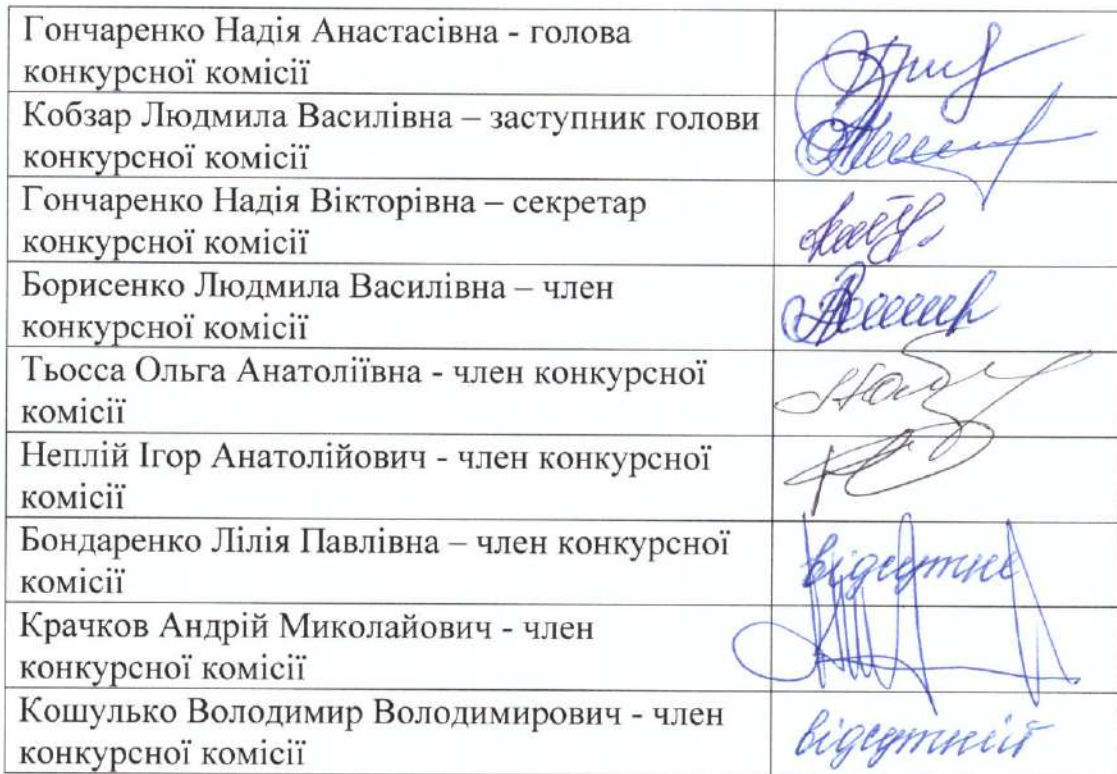 Гончаренко Надія Анастасівна - голова
конкурсної комісії
Кобзар Людмила Василівна – заступник голови
конкурсної комісії
Гончаренко Надія Вікторівна – секретар
конкурсної комісії
Борисенко Людмила Василівна – член
конкурсної комісії
Тьосса Ольга Анатоліївна - член конкурсної
комісії
Неплій Ігор Анатолійович - член конкурсної
комісії
Бондаренко Лілія Павлівна – член конкурсної
комісії
відсутня
Крачков Андрій Миколайович - член
конкурсної комісії
Кошулько Володимир Володимирович - член
конкурсної комісії
відсутній